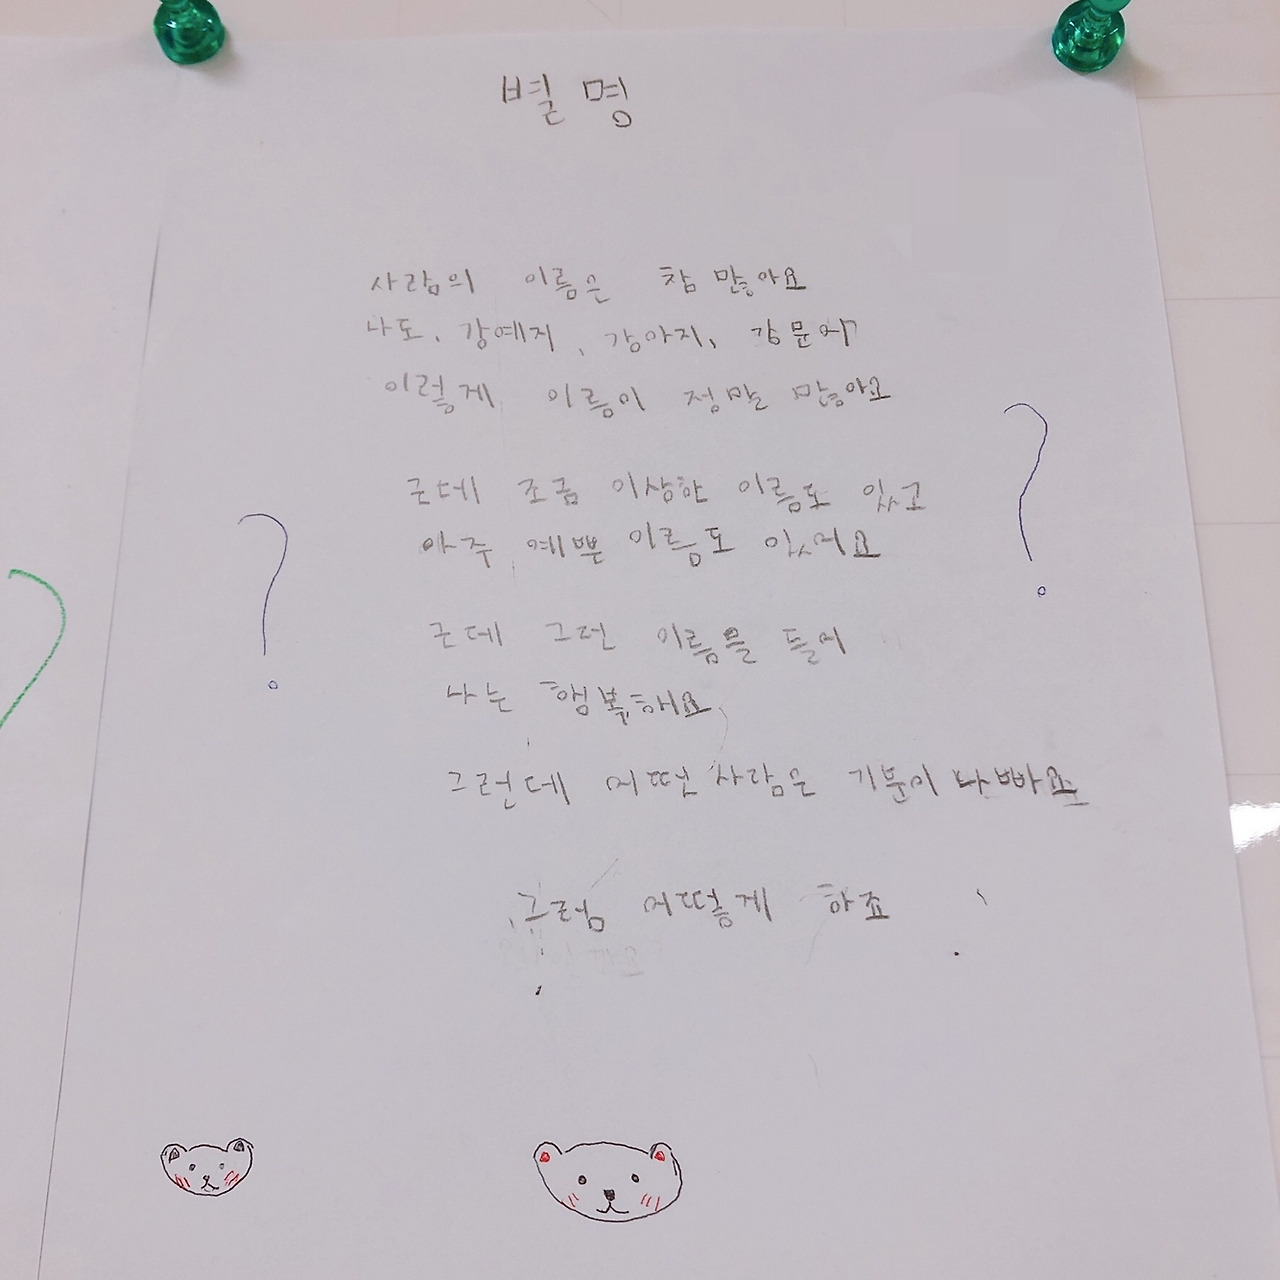 별명
사람의 이름은 참 많아요
나도, 강예지, 강아지, 강문어
이렇게 이름이 정말 많아요
근데 조금 이상한 이름도 있고
아주 예쁜 이름도 있어요
근데 그런 이름을 들어
나는 행복해요
그런데 어떤 사람은 기분이 나빠요
그럼 어떻게 하죠